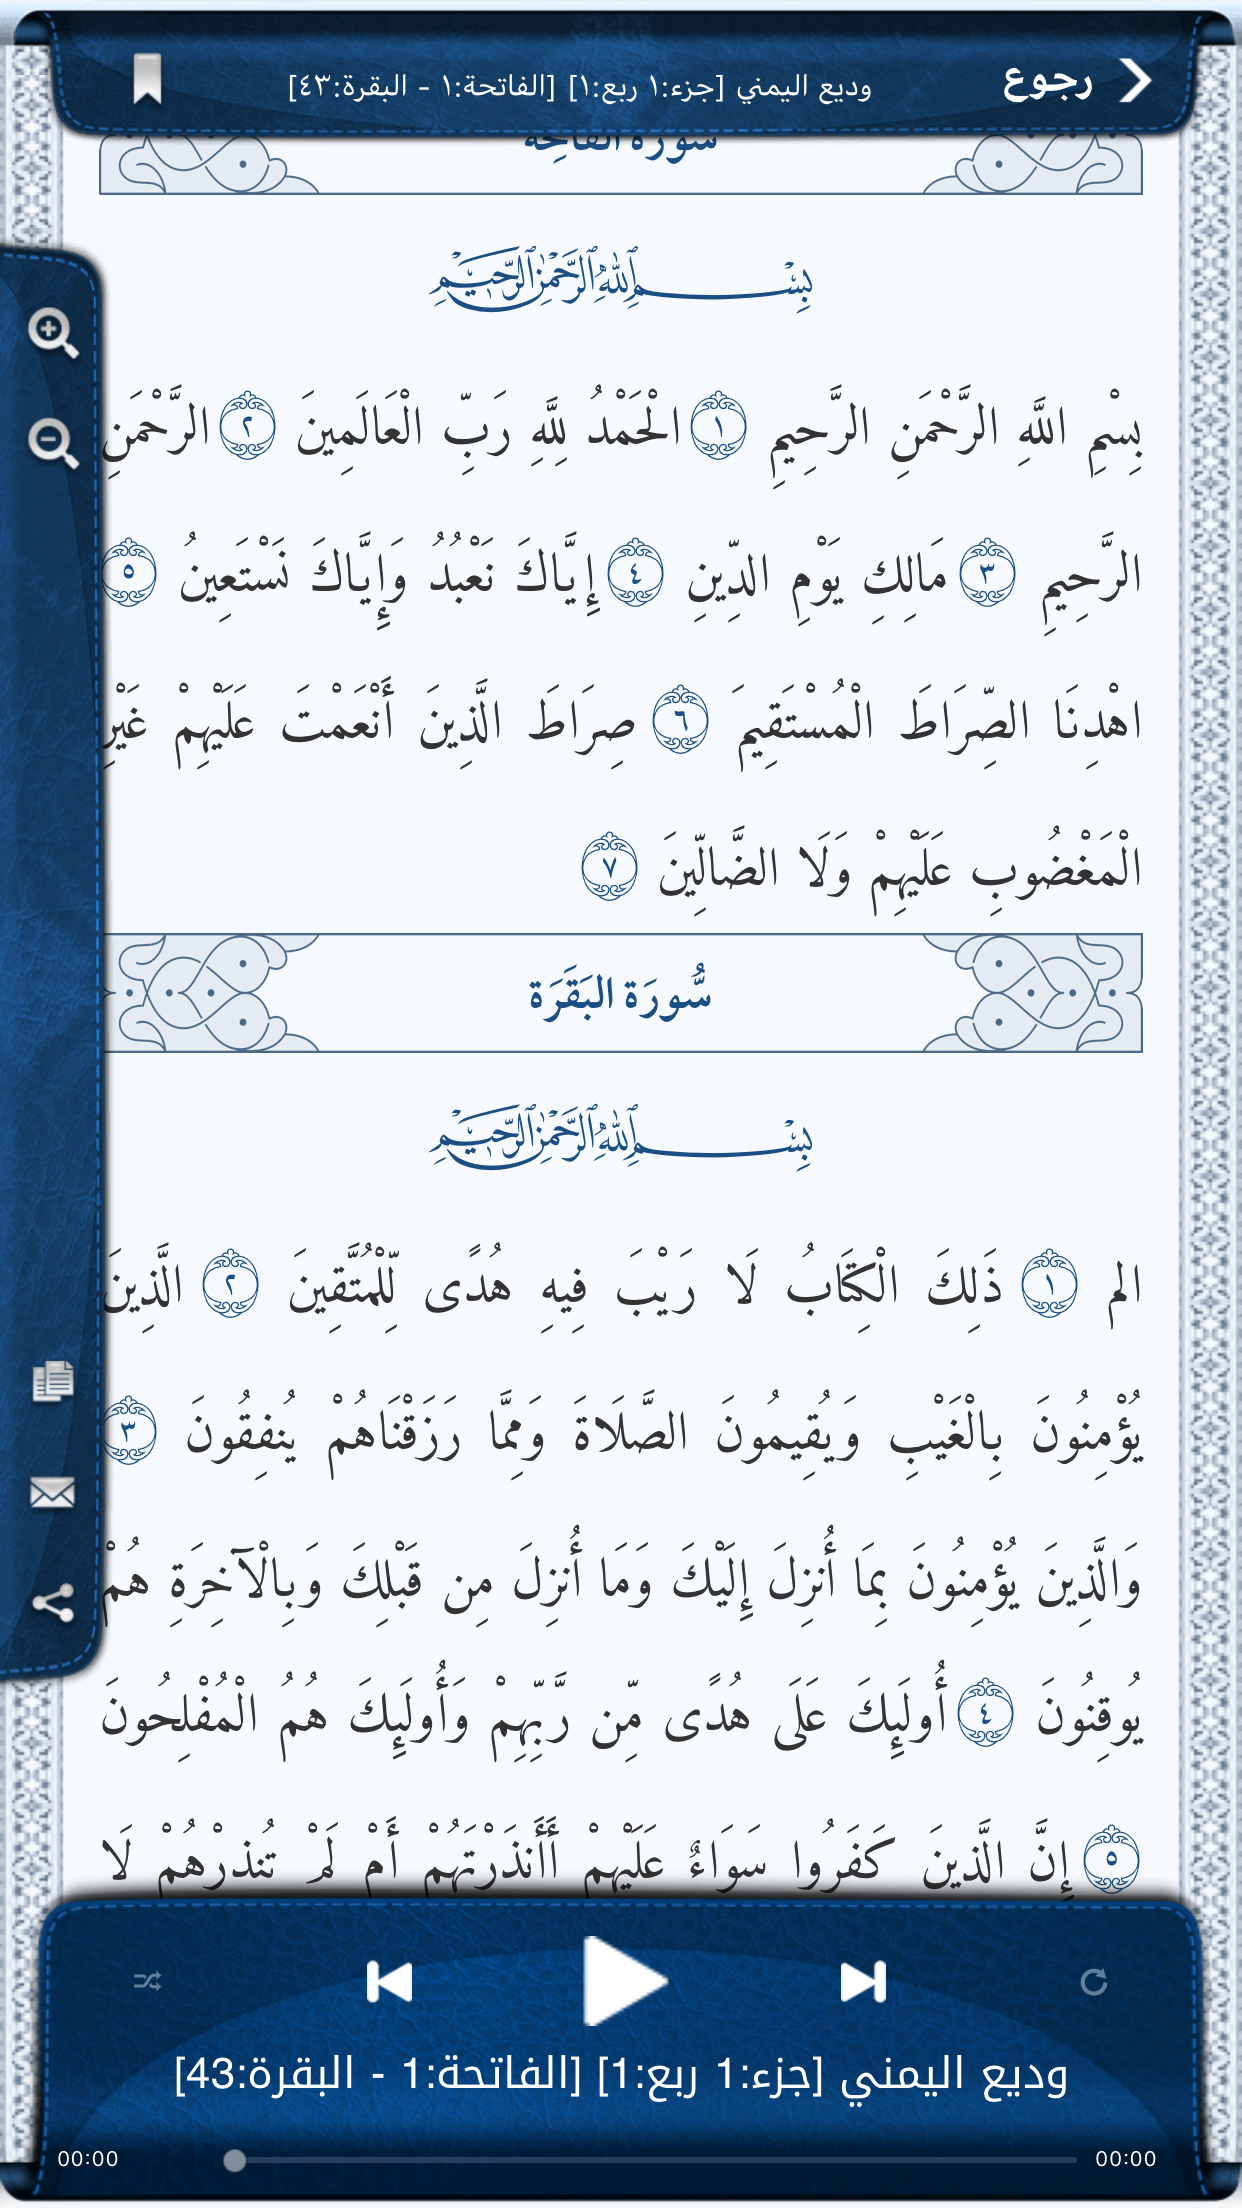 رجوع
وديع اليمني [جزء:١ ربع:١] [الفاتحة:١ - البقرة:٤٣]
سورة الفاتحة
بِسْمِ اللَّهِ الرَّحْمَٰنِ الرَّحِيمِ
بِسْمِ اللَّهِ الرَّحْمَنِ الرَّحِيمِ ١ الْحَمْدُ لِلَّهِ رَبِّ الْعَالَمِينَ ٢ الرَّحْمَنِ
الرَّحِيمِ ٣ مَالِكِ يَوْمِ الدِّينِ ٤ إِيَّاكَ نَعْبُدُ وَإِيَّاكَ نَسْتَعِينُ ٥
اهْدِنَا الصِّرَاطَ الْمُسْتَقِيمَ ٦ صِرَاطَ الَّذِينَ أَنْعَمْتَ عَلَيْهِمْ غَيْرِ
الْمَغْضُوبِ عَلَيْهِمْ وَلَا الضَّالِّينَ ٧
سُّورَة البَقَرَة
بِسْمِ اللَّهِ الرَّحْمَٰنِ الرَّحِيمِ
الم ١ ذَلِكَ الْكِتَابُ لَا رَيْبَ فِيهِ هُدًى لِّلْمُتَّقِينَ ٢ الَّذِينَ
يُؤْمِنُونَ بِالْغَيْبِ وَيُقِيمُونَ الصَّلَاةَ وَمِمَّا رَزَقْنَاهُمْ يُنفِقُونَ ٣
وَالَّذِينَ يُؤْمِنُونَ بِمَا أُنزِلَ إِلَيْكَ وَمَا أُنزِلَ مِن قَبْلِكَ وَبِالْآخِرَةِ هُمْ
يُوقِنُونَ ٤ أُولَئِكَ عَلَى هُدًى مِّن رَّبِّهِمْ وَأُولَئِكَ هُمُ الْمُفْلِحُونَ
٥ إِنَّ الَّذِينَ كَفَرُوا سَوَاءٌ عَلَيْهِمْ أَأَنذَرْتَهُمْ أَمْ لَمْ تُنذِرْهُمْ لَا
وديع اليمني [جزء:1 ربع:1] [الفاتحة:1 - البقرة:43]
00:00
00:00